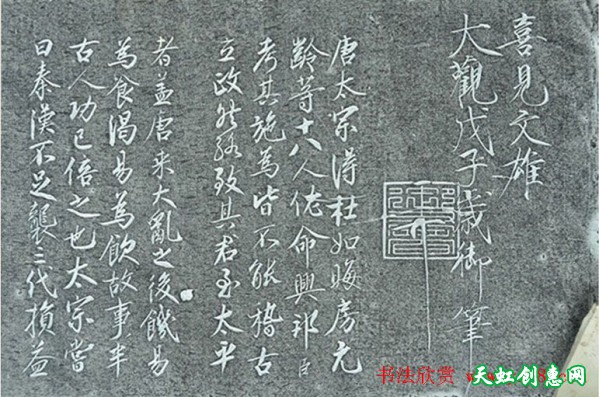 喜見文雄
大觀戊子歲御筆
唐太宗得杜如晦房元
齡等十八人佐命興邦臣
考其施為皆不能稽古
立政然致其君至太平
者蓋唐承大亂之後饑易
為食渴易為飲故事半
古人功已倍之也太宗嘗
曰秦漢不足襲三代損益
书法欣赏
天虹创意网